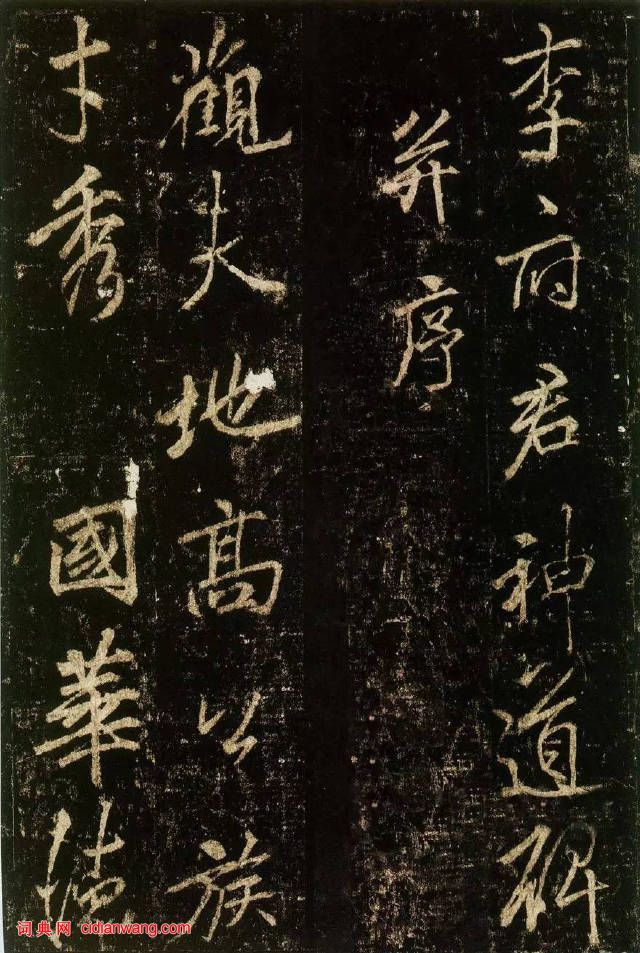 李府君神道碑
并序
觀夫地高公族
才秀國華德
词典网 cidianwang.com